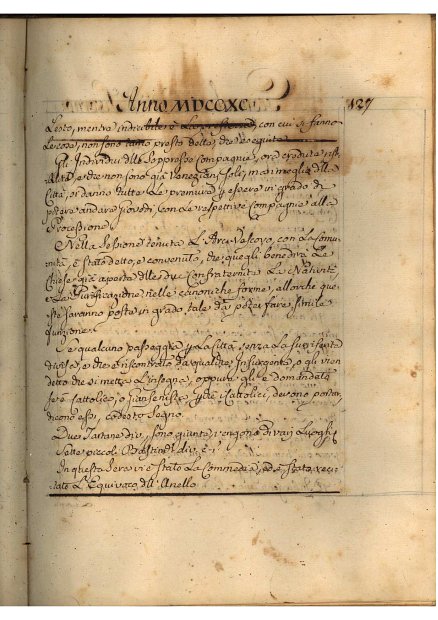 Anno MDCCXC
127
Lesto, mentre indicibile è La prestezza, con cui si fanno
Le cose, non sono tanto presto dette, che eseguite.
Gli Individui delle Soppresse Compagnie, ora credute ris
e che non sono già venezian, soli, ma i meglio della
Città, si danno tutte Le premure per essere in grado di
potere andare Giovedì con Le respettive Compagnie alla
Processione.
Nella Sessione tenuta L'Arcivescovo, con La Comu
nità, è stato detto, e convenuto, che quegli benedirà Le
Chiese già aperte delle due Confraternite La Natività,
e La Purificazione nelle canoniche forme, allorche que
ste saranno poste in grado tale da poter fare simile
funzione.
Se qualcuno passeggia per La Città, senza La suriferita
divisa, o che è incontrato da qualche Insurgente, o gli vien
detto che si metta L'insegna, oppure gli è domandato
se è Cattolico, o Giansenista, perche i Cattolici, devono portar,
dicono essi, cadesto segno.
Due Tartane sono giunte, vengono di vari Luoghi
Sette piccoli Bastimenti
In questa sera vi è stato La Commedia, ed è stato reci
tato L'Equivoco dell'Anello.